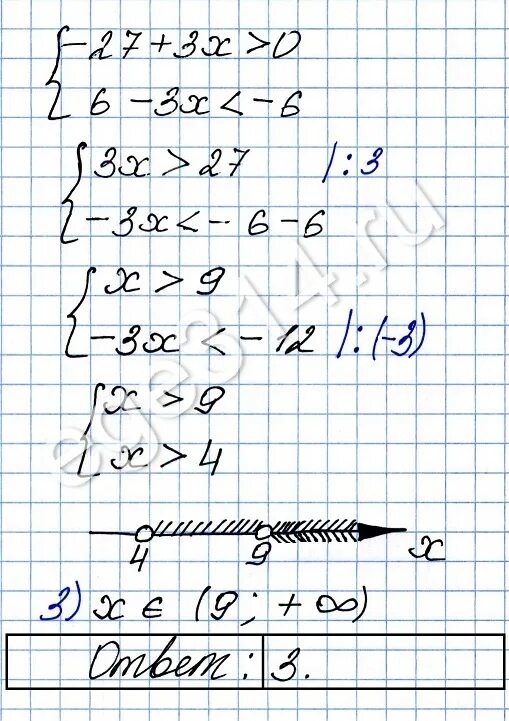 {-27+3x>0
6-3x<-6
{3x>27 |:3
-3x<-6-6
{x>9
-3x<-12 |:(-3)
{x>9
x>4
4 9 x
3) x ∈ (9; +∞)
Ответ: 3.
ege314.ru